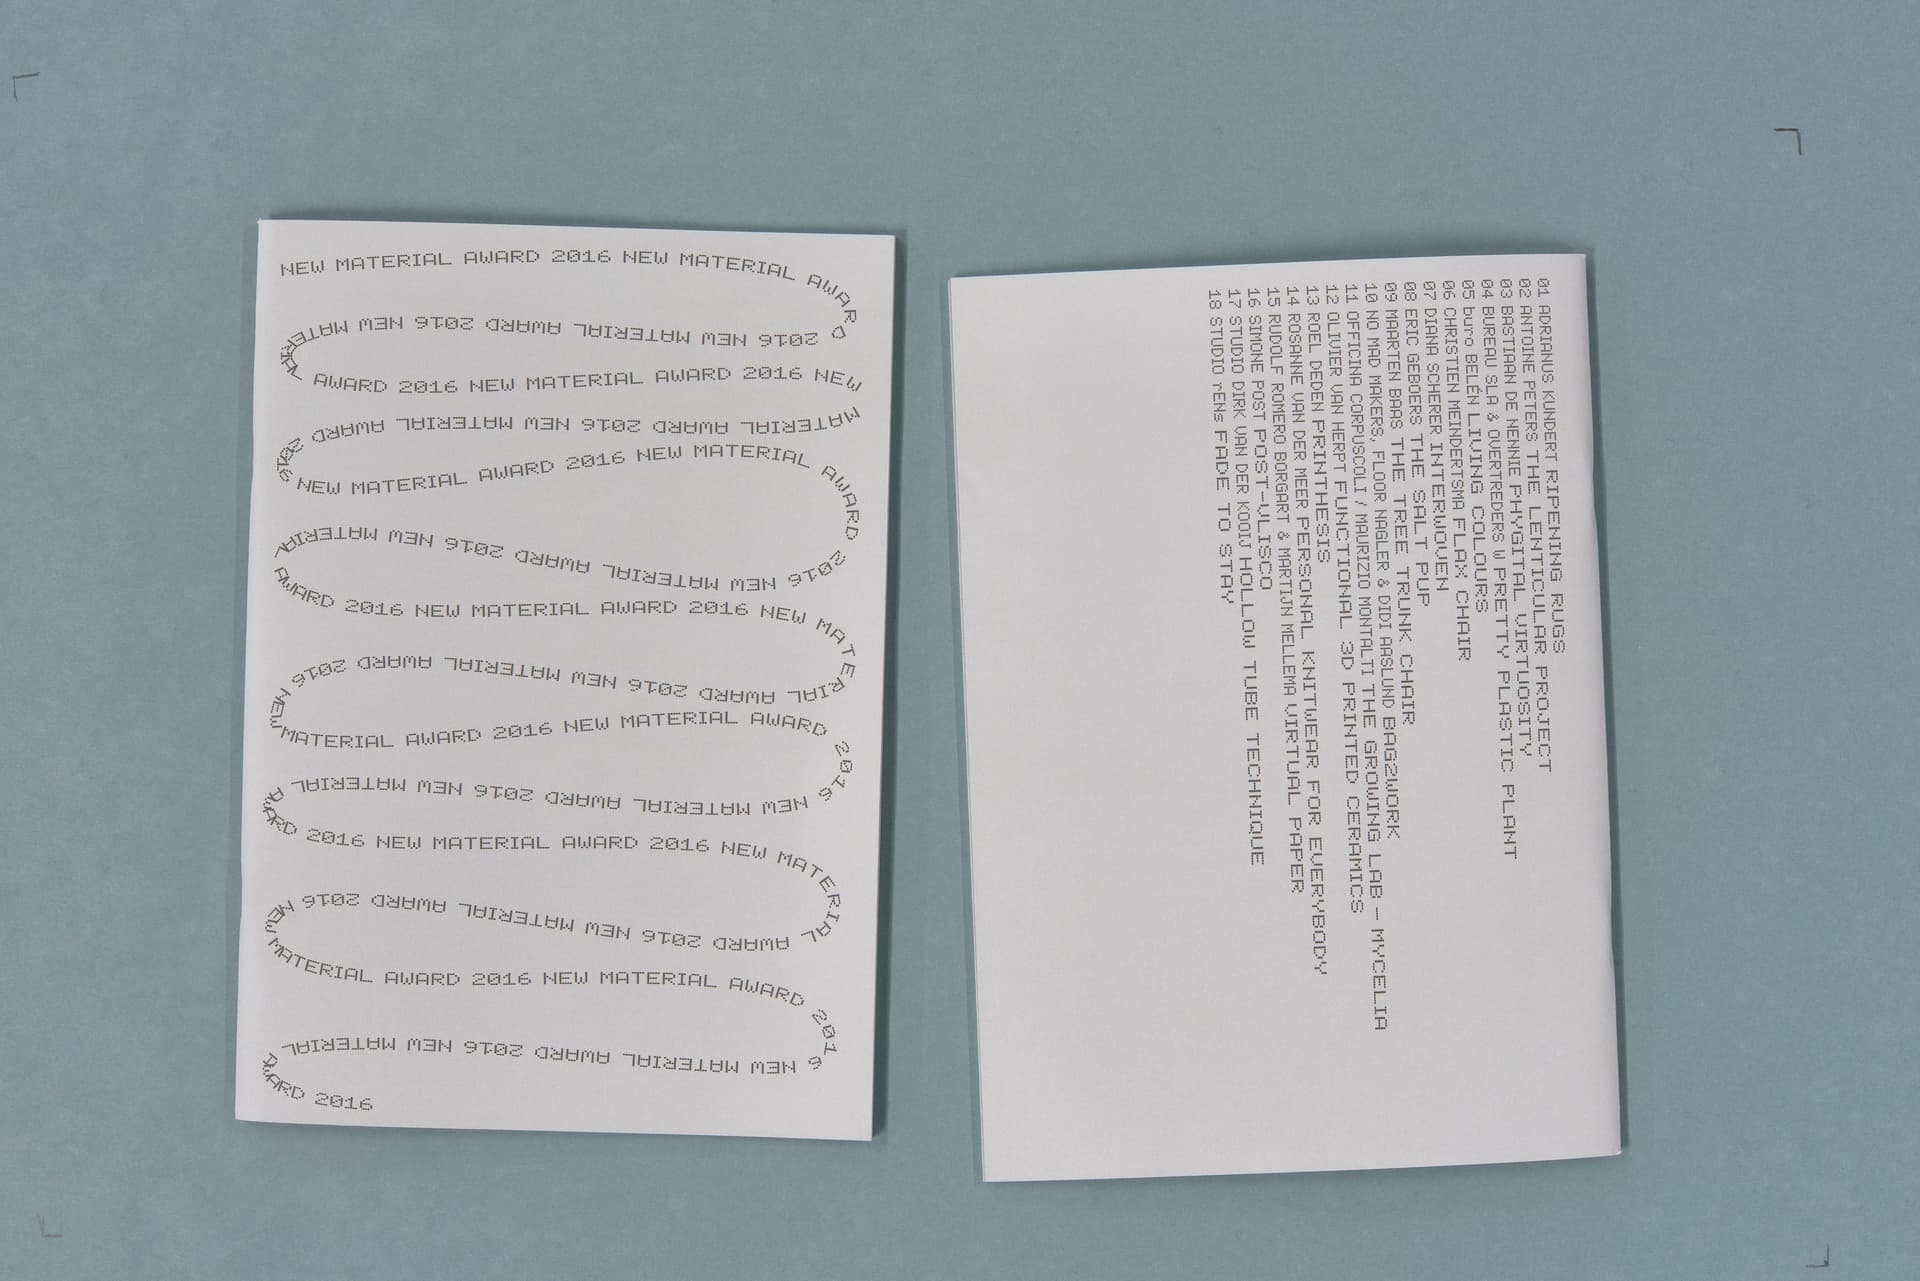 NEW MATERIAL AWARD 2016 NEW MATERIAL AWARD
2016 NEW MATERIAL AWARD 2016 NEW MATERIAL
AWARD 2016 NEW MATERIAL AWARD 2016 NEW
MATERIAL AWARD 2016 NEW MATERIAL AWARD 2016
NEW MATERIAL AWARD 2016 NEW MATERIAL AWARD 2016
NEW MATERIAL AWARD 2016 NEW MATERIAL
AWARD 2016 NEW MATERIAL AWARD 2016 NEW MATERIAL
AWARD 2016 NEW MATERIAL AWARD 2016 NEW
MATERIAL AWARD 2016 NEW MATERIAL AWARD 2016
NEW MATERIAL AWARD 2016 NEW MATERIAL AWARD
2016 NEW MATERIAL AWARD 2016 NEW MATERIAL
AWARD 2016 NEW MATERIAL AWARD 2016 NEW
MATERIAL AWARD 2016 NEW MATERIAL AWARD 2016
NEW MATERIAL AWARD 2016 NEW MATERIAL AWARD
2016
01 ADRIANUS KUNDERT RIPENING RUGS
02 ANTOINE PETERS THE LENTICULAR PROJECT
03 BASTIAAN DE NENNIE PHYGITAL VIRTUOSITY
04 BUREAU SLA & OVERTREDERS W PRETTY PLASTIC PLANT
05 buro BELÉN LIVING COLOURS
06 CHRISTIEN MEINDERTSMA FLAX CHAIR
07 DIANA SCHERER INTERWOVEN
08 ERIC GEBOERS THE SALT PUP
09 MAARTEN BAAS THE TREE TRUNK CHAIR
10 NO MAD MAKERS, FLOOR NAGLER & DIDI AASLUND BAG2WORK
11 OFFICINA CORPUSCOLI / MAURIZIO MONTALTI THE GROWING LAB – MYCELIA
12 OLIVIER VAN HERPT FUNCTIONAL 3D PRINTED CERAMICS
13 ROEL DEDEN PRINTHESIS
14 ROSANNE VAN DER MEER PERSONAL KNITWEAR FOR EVERYBODY
15 RUDOLF ROMERO BORGART & MARTIJN MELLEMA VIRTUAL PAPER
16 SIMONE POST POST-VLISCO
17 STUDIO DIRK VAN DER KOOIJ HOLLOW TUBE TECHNIQUE
18 STUDIO rENs FADE TO STAY